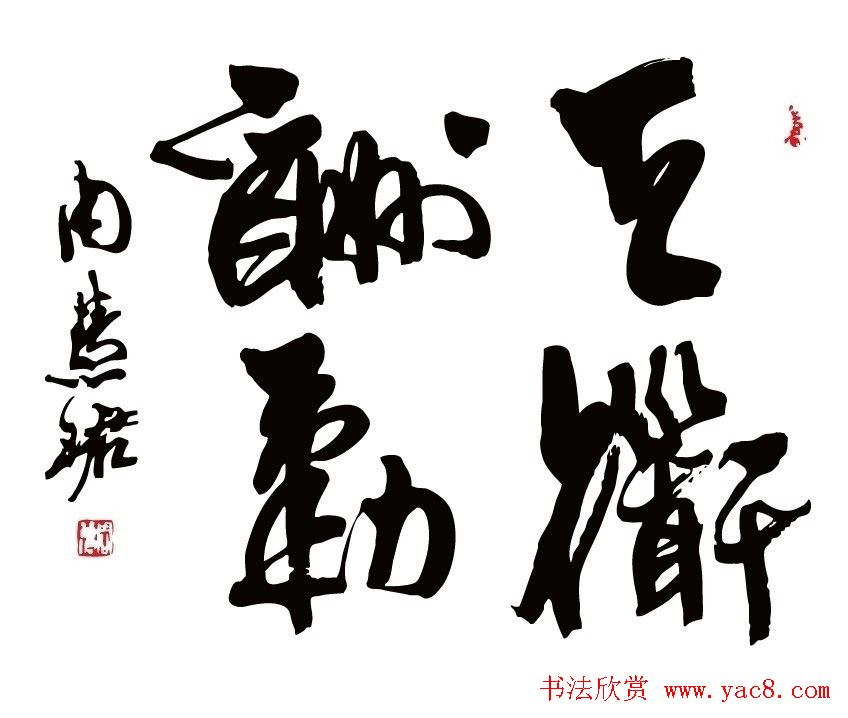 天衜
酬勤
周慧珺
书法欣赏 www.yac8.com